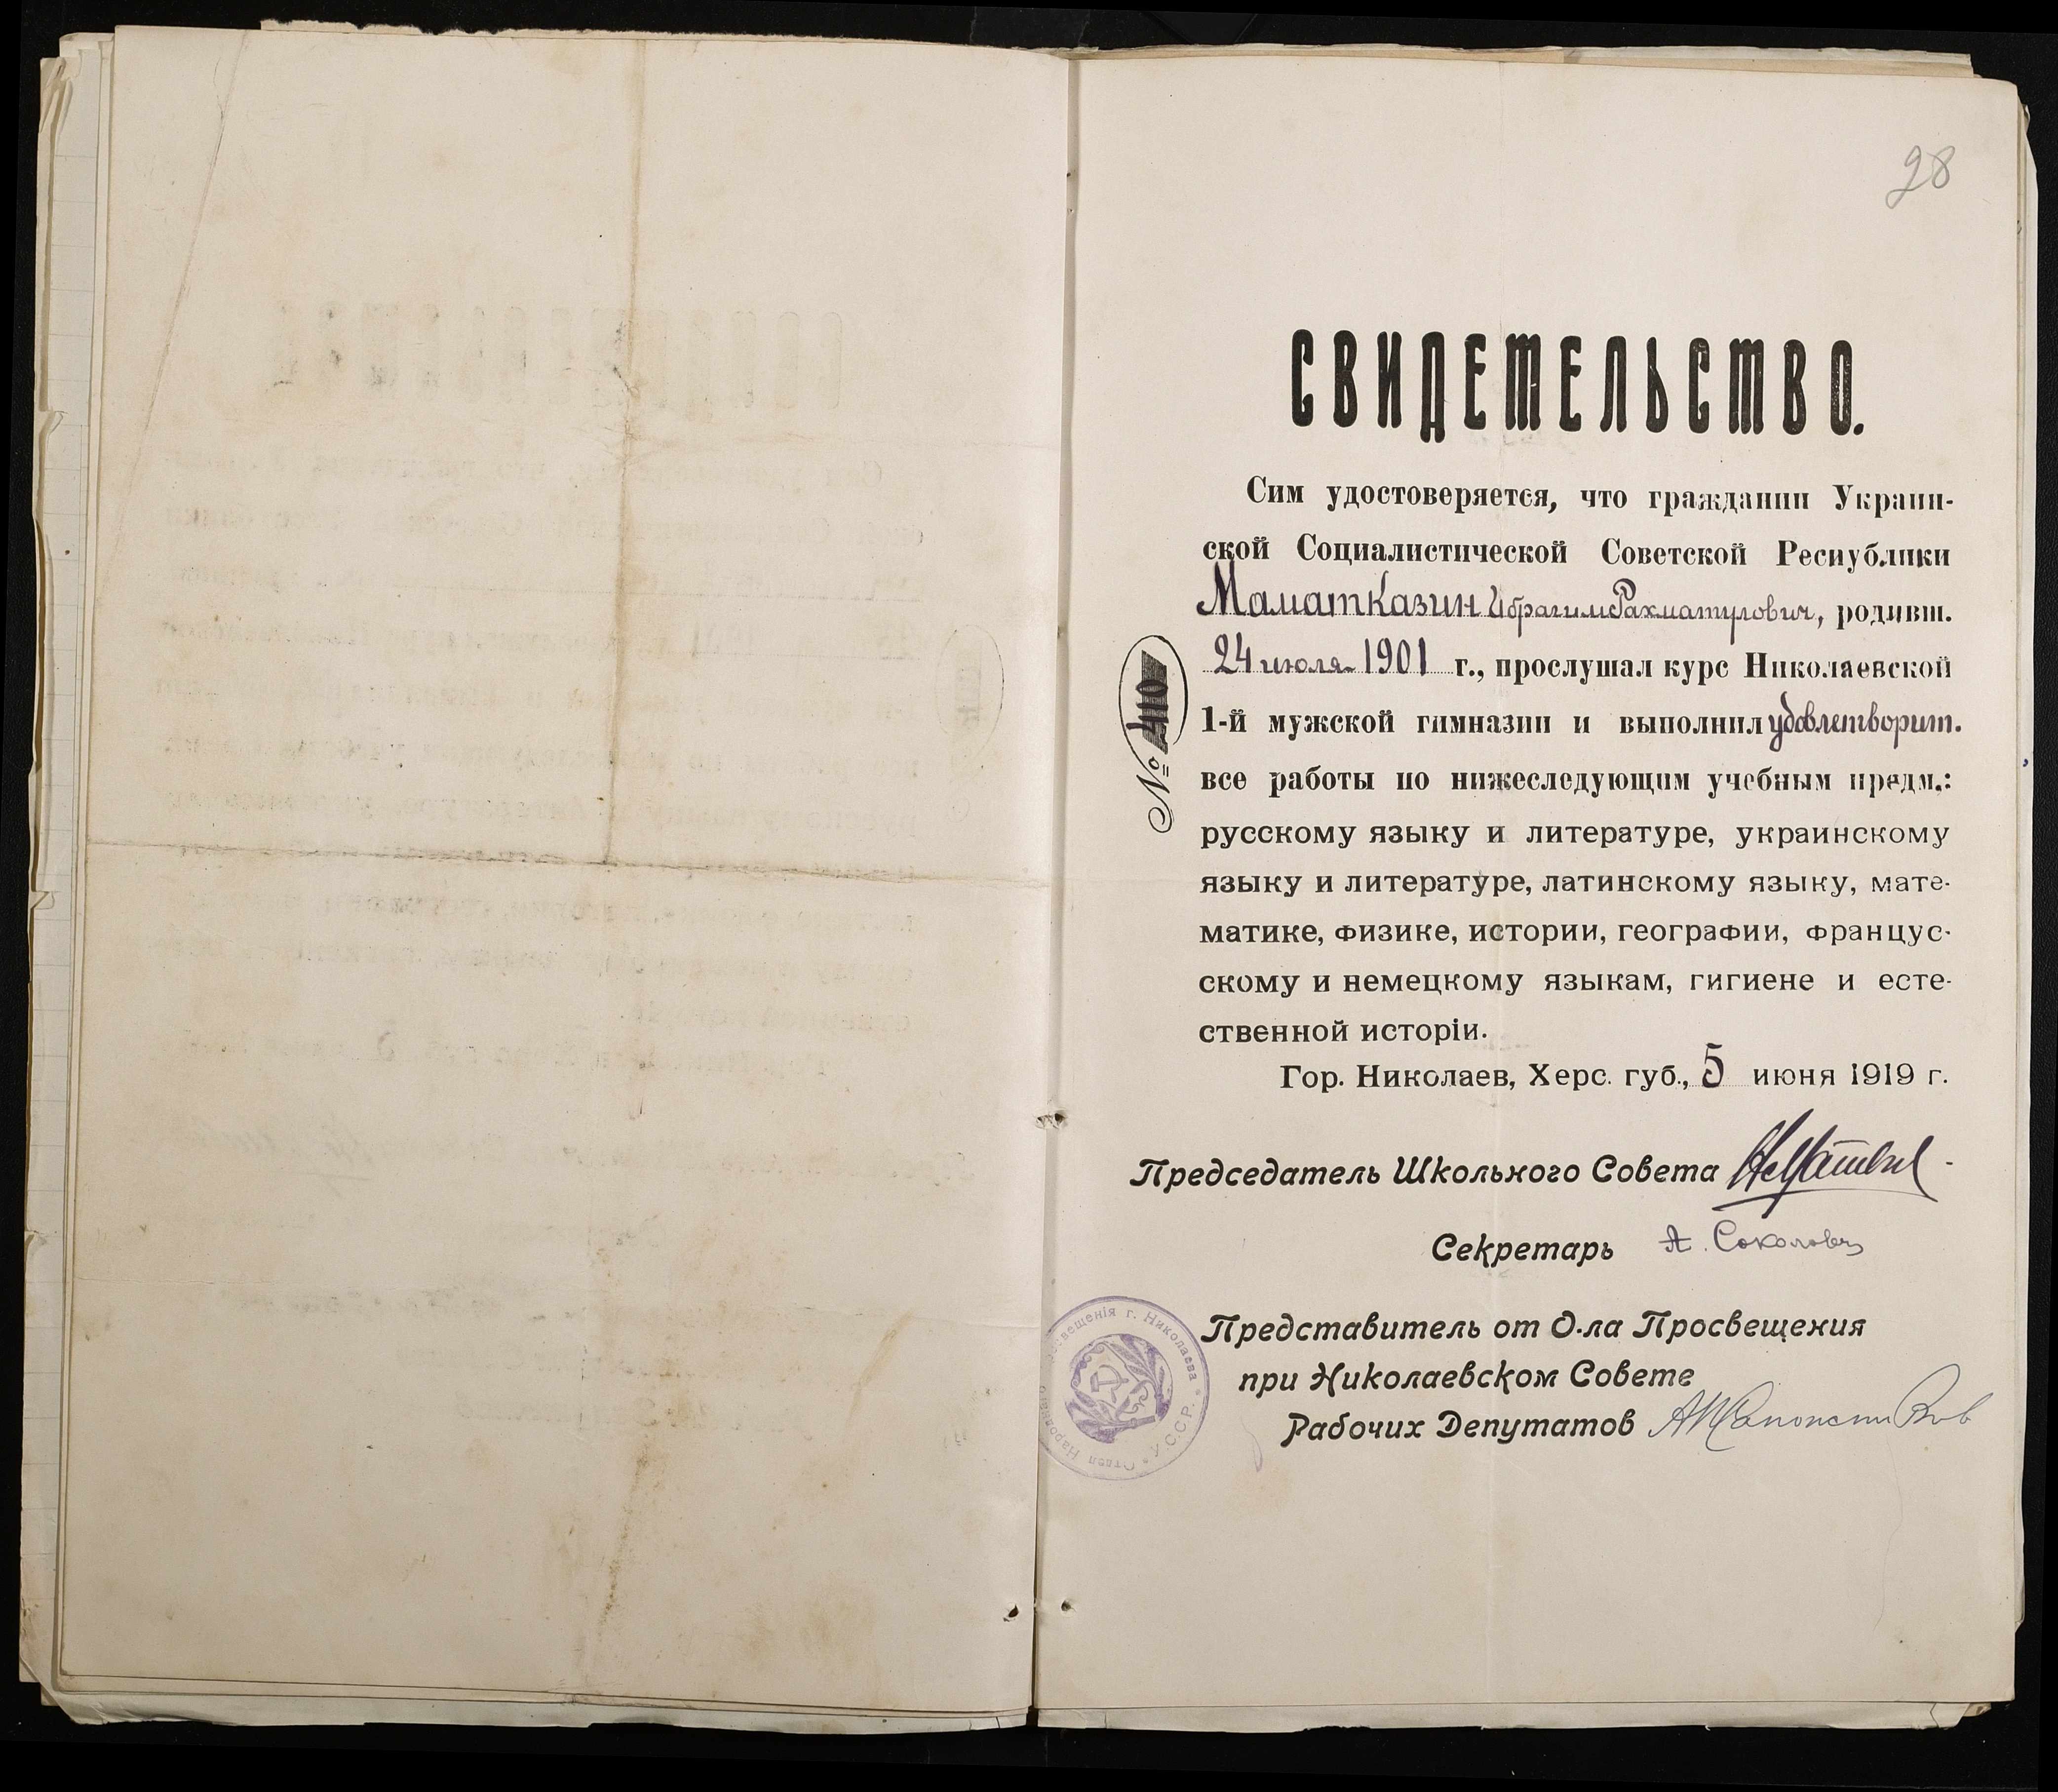 28
СВИДЕТЕЛЬСТВО.
Сим удостоверяется, что гражданин Украин-
ской Социалистической Советской Республики
Маматказин Ибрагим Рахматулович, родивш.
24 июля 1901 г., прослушал курс Николаевской
1-й мужской гимназии и выполнил удовлетворит.
все работы по нижеследующим учебным предм.:
русскому языку и литературе, украинскому
языку и литературе, латинскому языку, мате-
матике, физике, истории, географии, француc-
скому и немецкому языкам, гигиене и есте-
ственной исторіи.
Гор. Николаев, Херс. губ., 5 июня 1919 г.
№ 410
Председатель Школьного Совета
Секретарь А. Соколовъ
Представитель от О-ла Просвещения
при Николаевском Совете
Рабочих Депутатов
Отдел Народнаго Просвещенія г. Николаева * У.С.С.Р. *